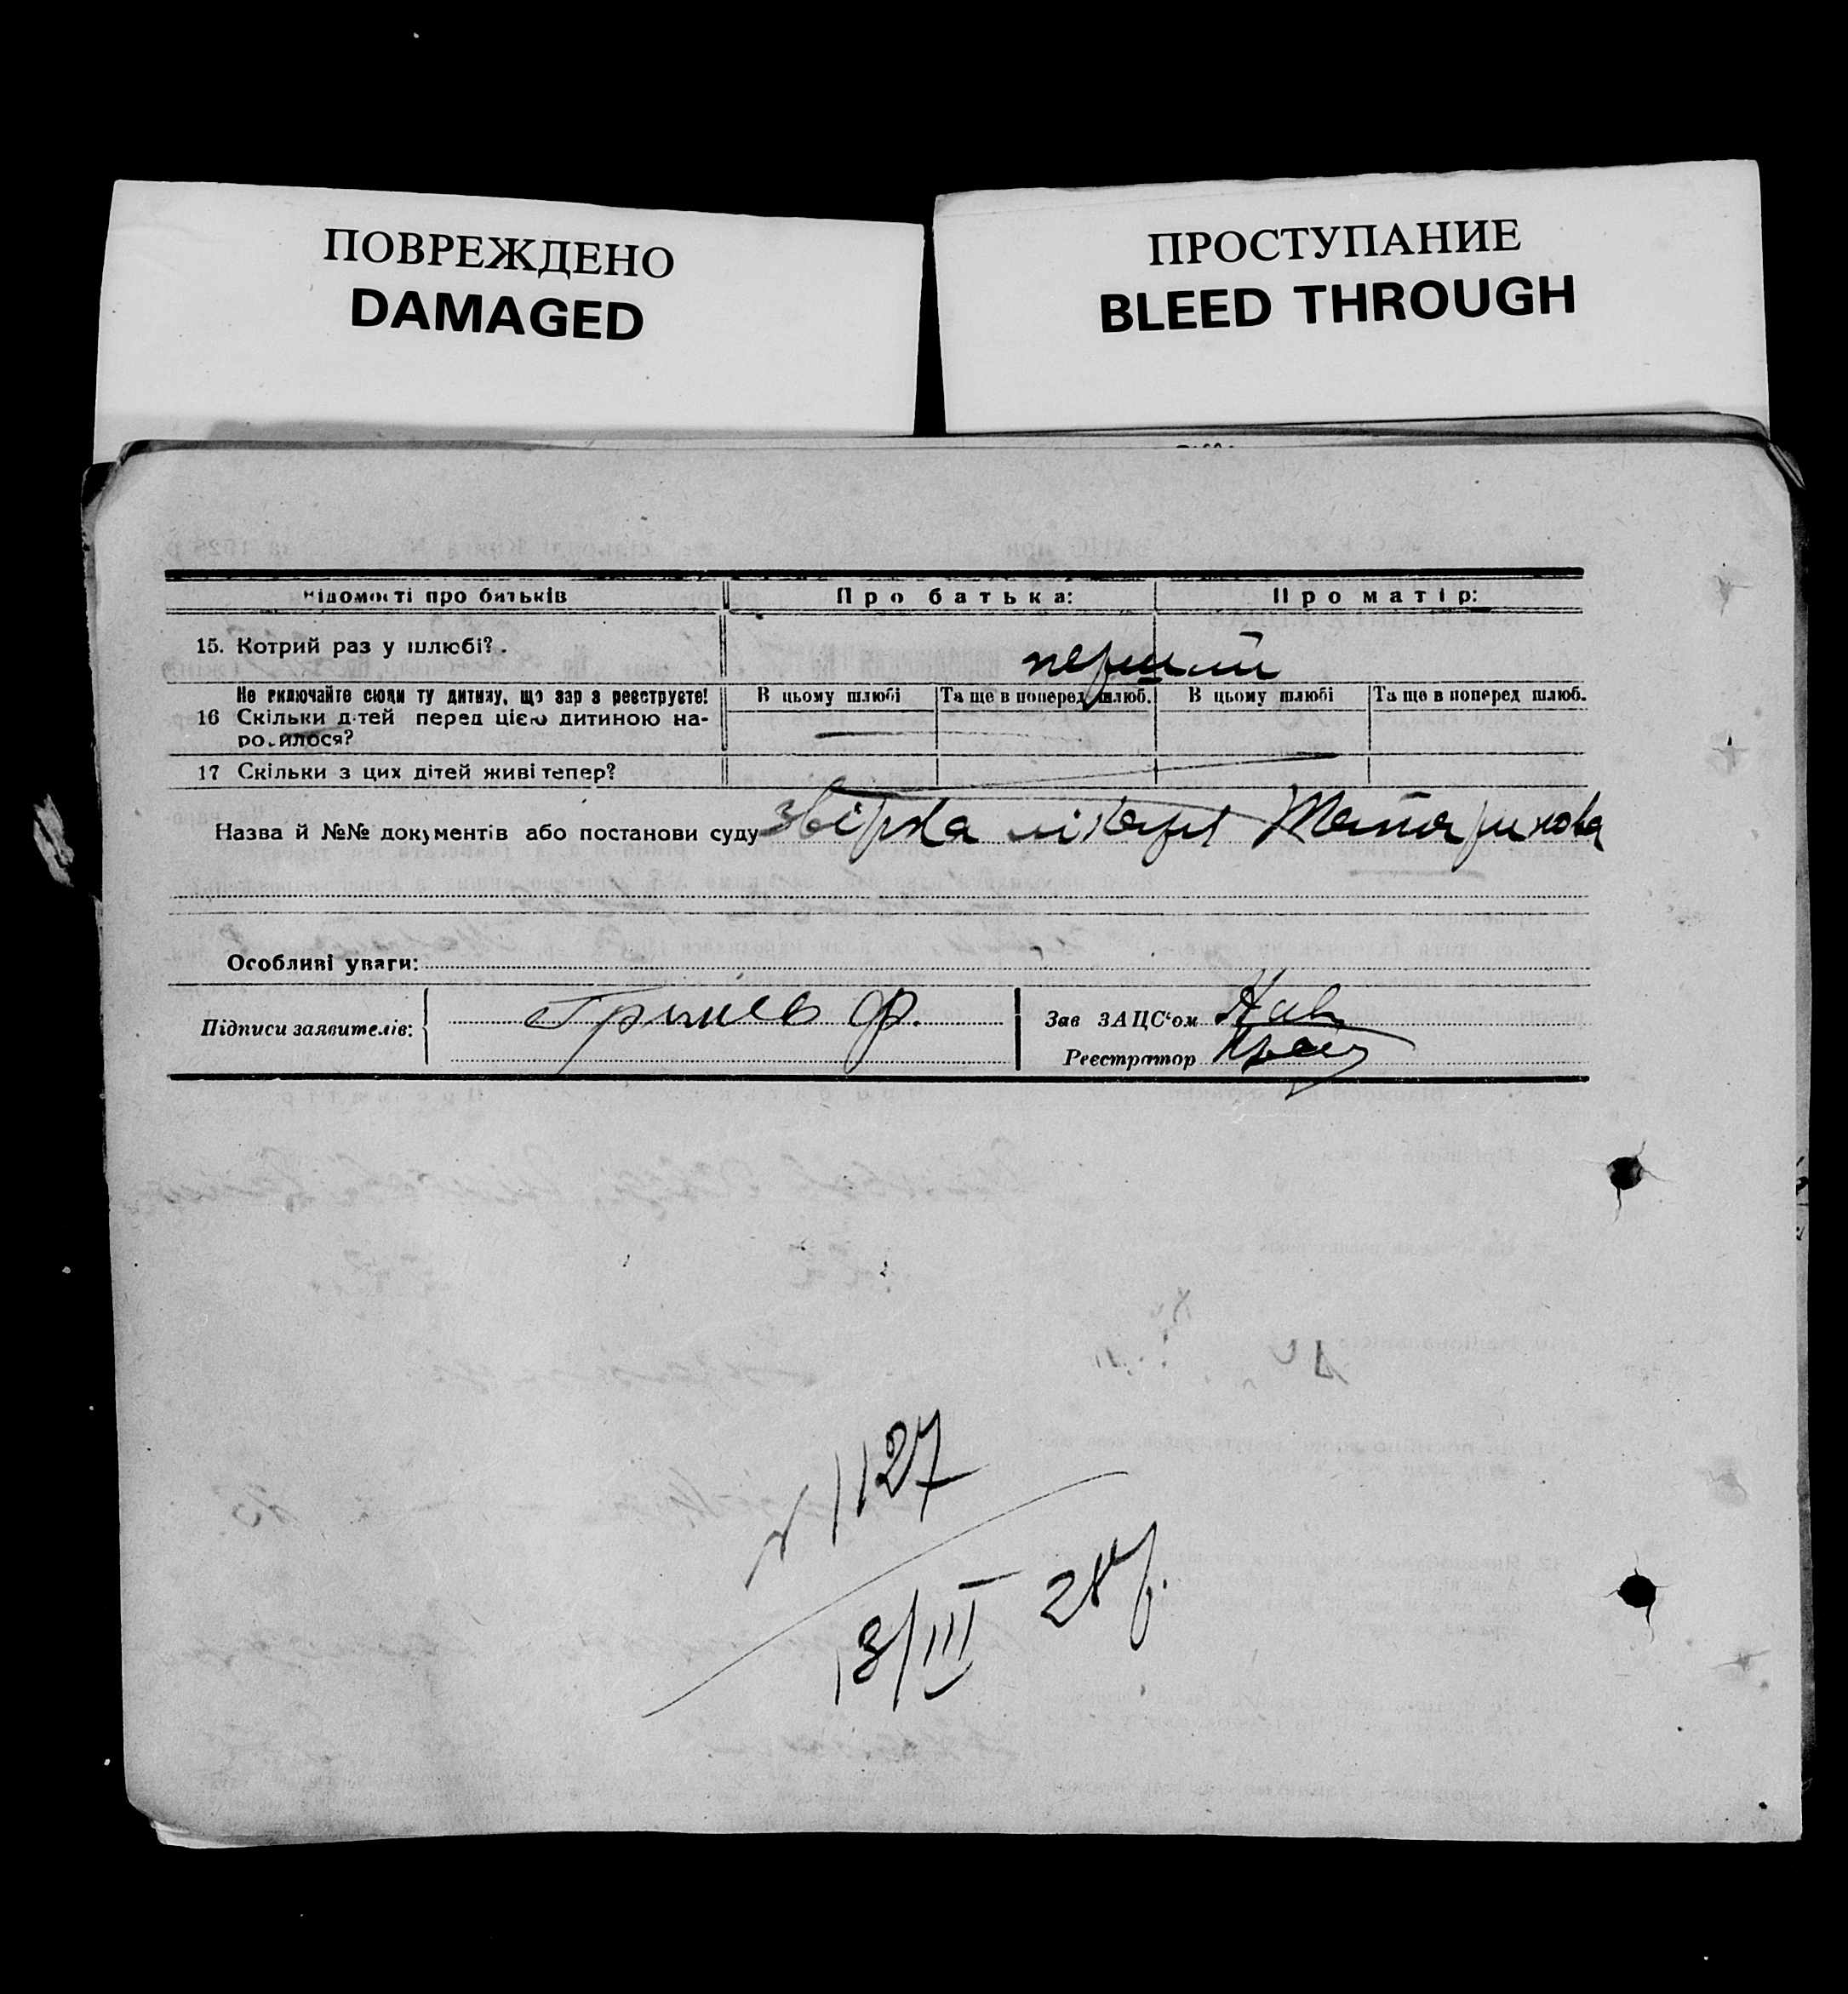 ПОВРЕЖДЕНО
DAMAGED
ПРОСТУПАНИЕ
BLEED THROUGH
Відомості про батьків
Про батька:
Про матір:
15. Котрий раз у шлюбі?
перший
Не включайте сюди ту дитину, що зараз реєструєте!
16 Скільки дітей перед цією дитиною на-
родилося?
В цьому шлюбі
Та ще в поперед. шлюб.
В цьому шлюбі
Та ще в поперед шлюб.
17 Скільки з цих дітей живі тепер?
Назва й №№ документів або постанови суду
лікаря
Особливі уваги:
Підписи заявителів:
Ф.
Зав ЗАЦС'ом
Реєстратор
№ 1127
13/III 28 р.